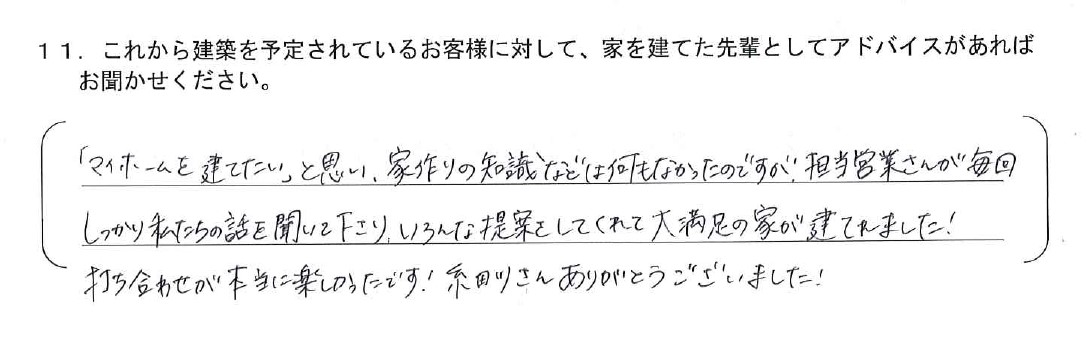 11．これから建築を予定されているお客様に対して、家を建てた先輩としてアドバイスがあれば
お聞かせください。
「マイホームを建てたい」と思い、家作りの知識などは何もなかったのですが、担当営業さんが毎回
しっかり私たちの話を聞いて下さり、いろんな提案をしてくれて大満足の家が建てれました！
打ち合わせが本当に楽しかったです！細川さんありがとうございました！